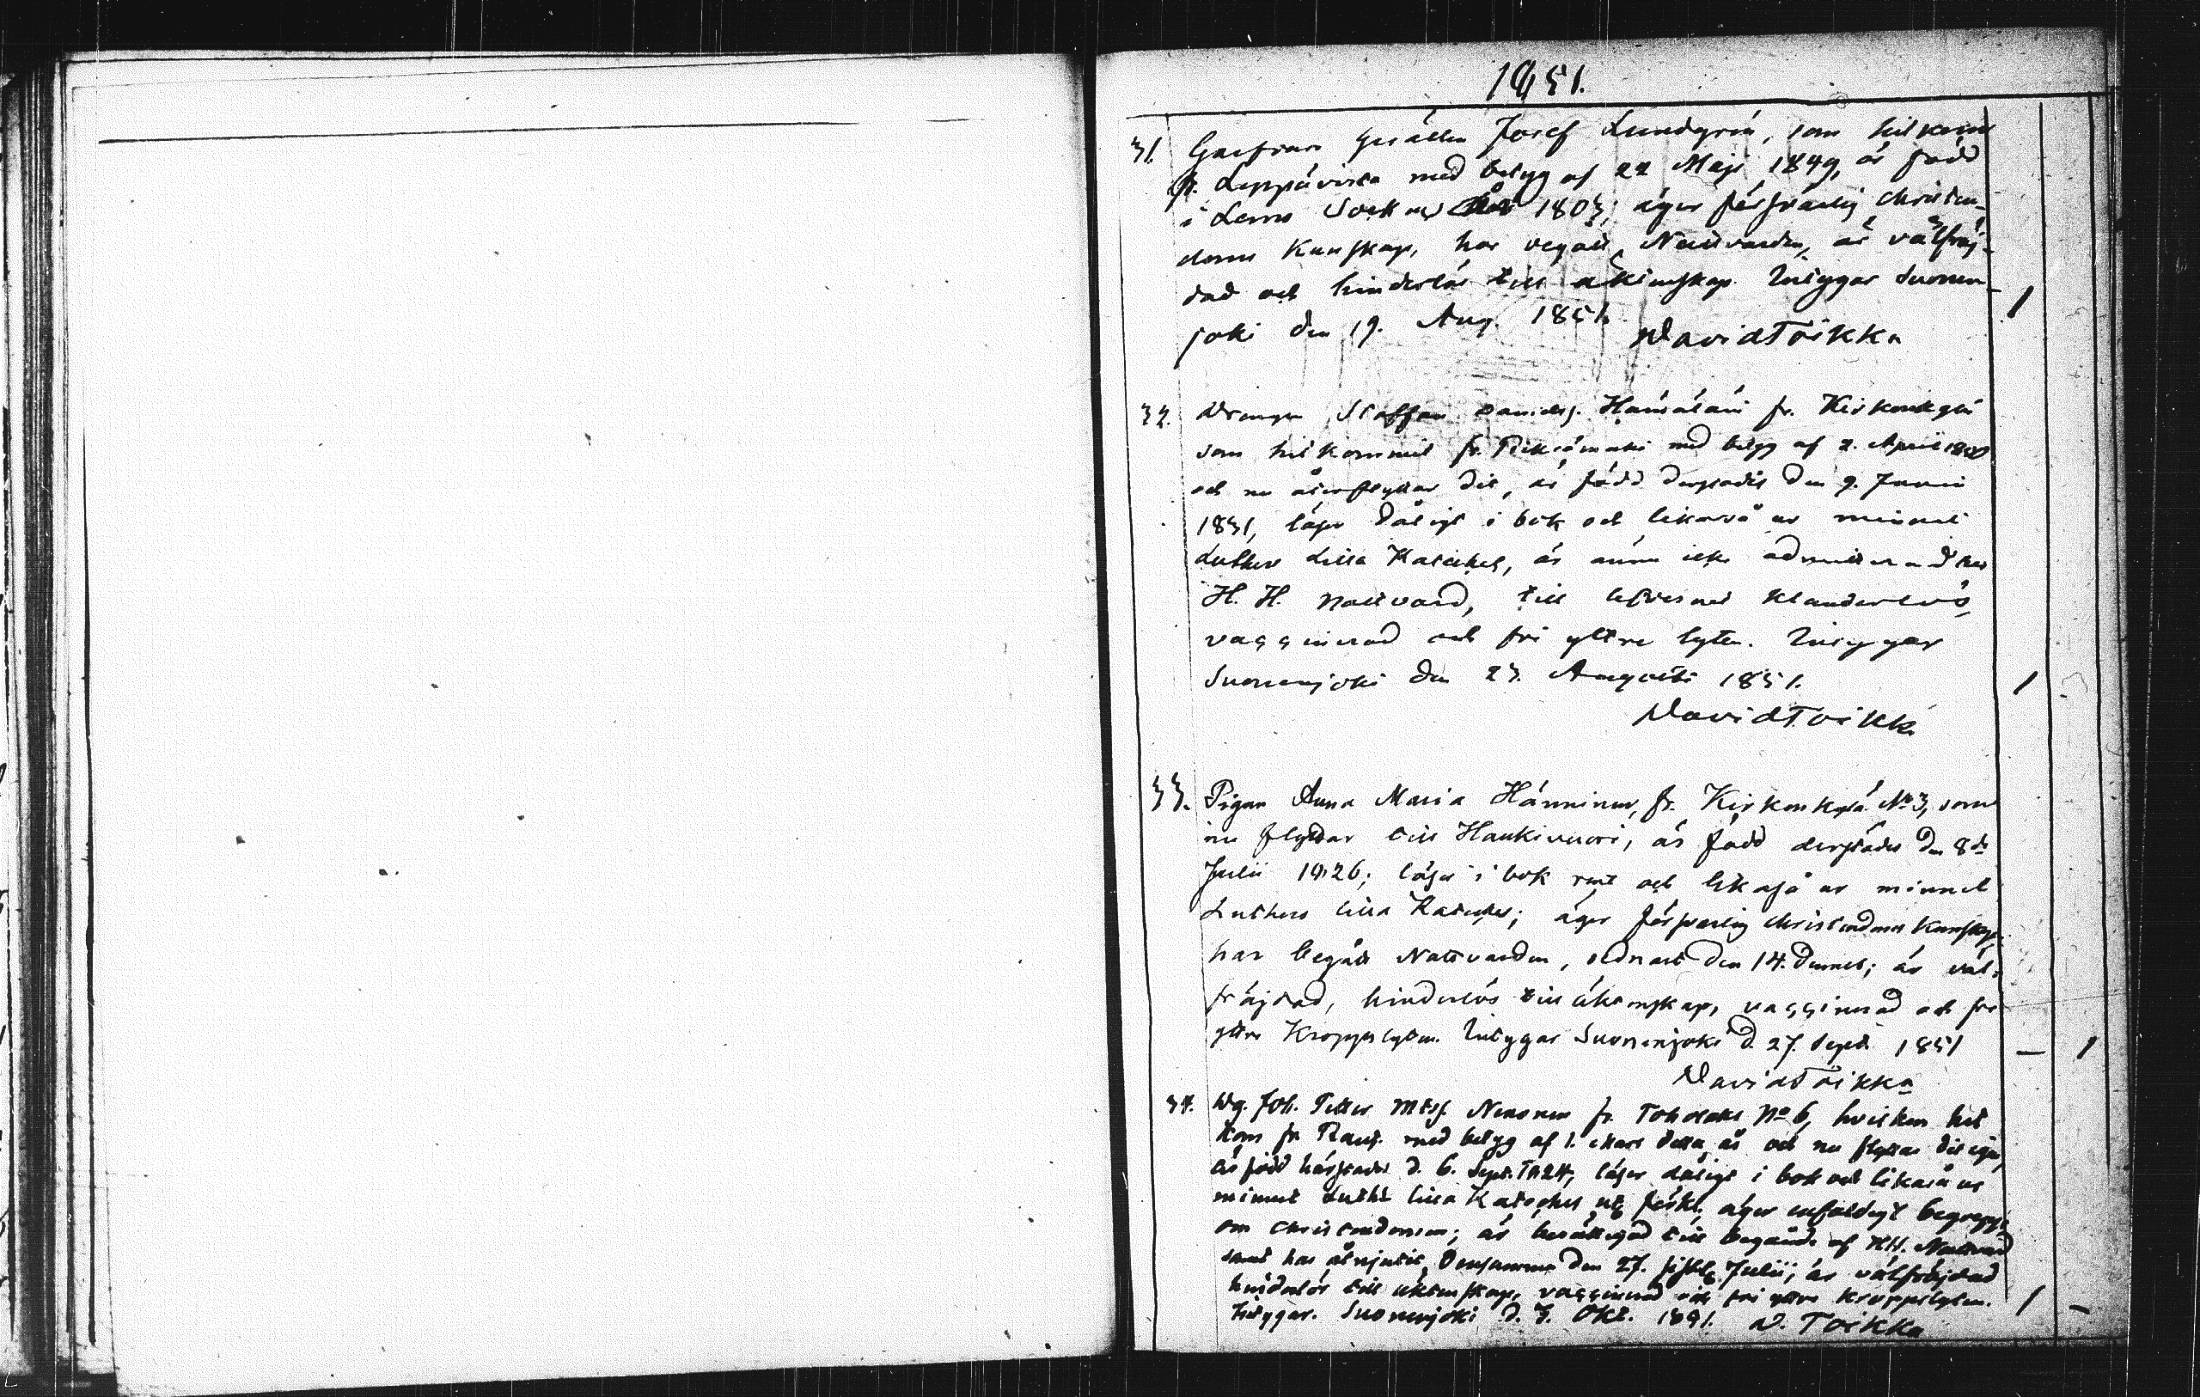 1851.
31. Garfvare Gesällen Josef Lundgrén, som hitkom
fr. Leppävirta med betyg af 22 Maji 1849, är född
i Lemo Sockn 1803; äger försvarlig christen-
doms Kunskap, har begått Nattvarden, är välfräj-
dad och hinderlös till äktenskap. Intygar Suonen-
joki den 19. Aug. 1851.
David Toikka
1
32. Drengen Staffan Danielss. Hämäläin fr. Kirkonkylä
som hitkommit fr. Pieksämäki med betyg af 2. April 1850
och nu återflyttar dit, är född derstädes den 9. Junii
1831, läser dåligt i bok och likaså ur minnet
Luthers Lilla Kateches, är ännu icke admitterad
H. H. Nattvard, till lefvernet klanderlös,
vaccinerad och fri yttre lyten. Intygar
Suonenjoki den 23. Augusti 1851.
David Toikka
1
33. Pigan Anna Maria Hänninen, fr. Kirkonkylä No 3, som
nu flyttar till Haukivuori, är född derstädes den 8de
Julii 1826; läser i bok rent och likaså ur minnet
Luthers lilla Kateches; äger försvarlig christendoms Kunskap,
har begått Nattvarden, sednast den 14. dennes; är väl-
fräjdad, hinderlös till äktenskap, vaccinerad och fri
yttre Kroppslyten. Intygar Suonenjoki d. 27. Sept. 1851
David Toikka
— 1
34. Dg. Joh. Petter Mtsf. Nenonen fr. Toholaks No 6, hvilken hit
kom fr. Raut. med betyg af 1. Mars detta år och nu flyttar dit igen,
är född härstädes d. 6. Sept. 1824, läser dåligt i bok och likaså ur
minnet Luths lilla Kateches utg förkl, äger enfaldigt begrepp
om christendomen; är berättigad till begående af HH. Nattvard
samt har åtnjutit densamma den 27. sistl. Julii; är välfräjdad
hinderlös till äktenskap, vaccinerad och fri yttre kroppslyten.
Intygar. Suonenjoki d. 3. Okt. 1851. D. Toikka
1 –